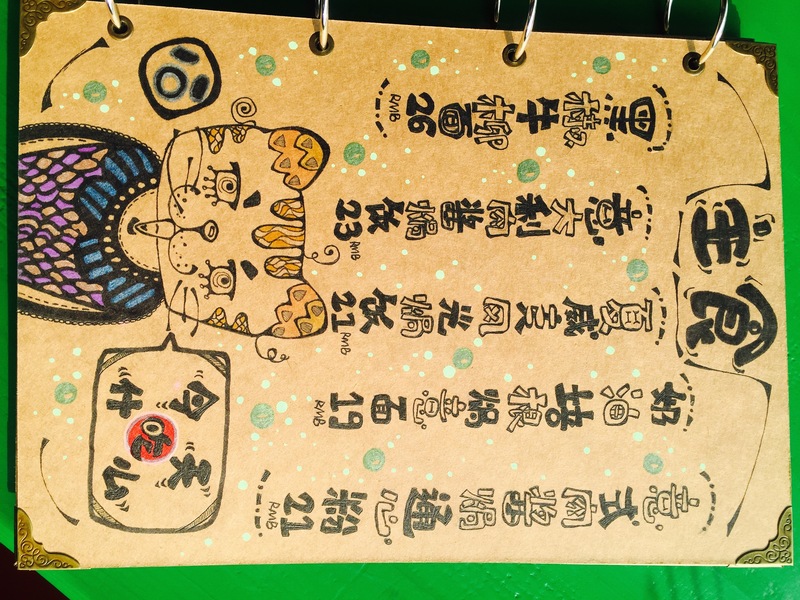 主食
黑椒牛柳面 26 RMB
意大利肉酱焗饭 23 RMB
夏威夷风光焗饭 21 RMB
奶油培根焗意面 19 RMB
意式肉酱焗通心粉 21 RMB
今天
吃
什么